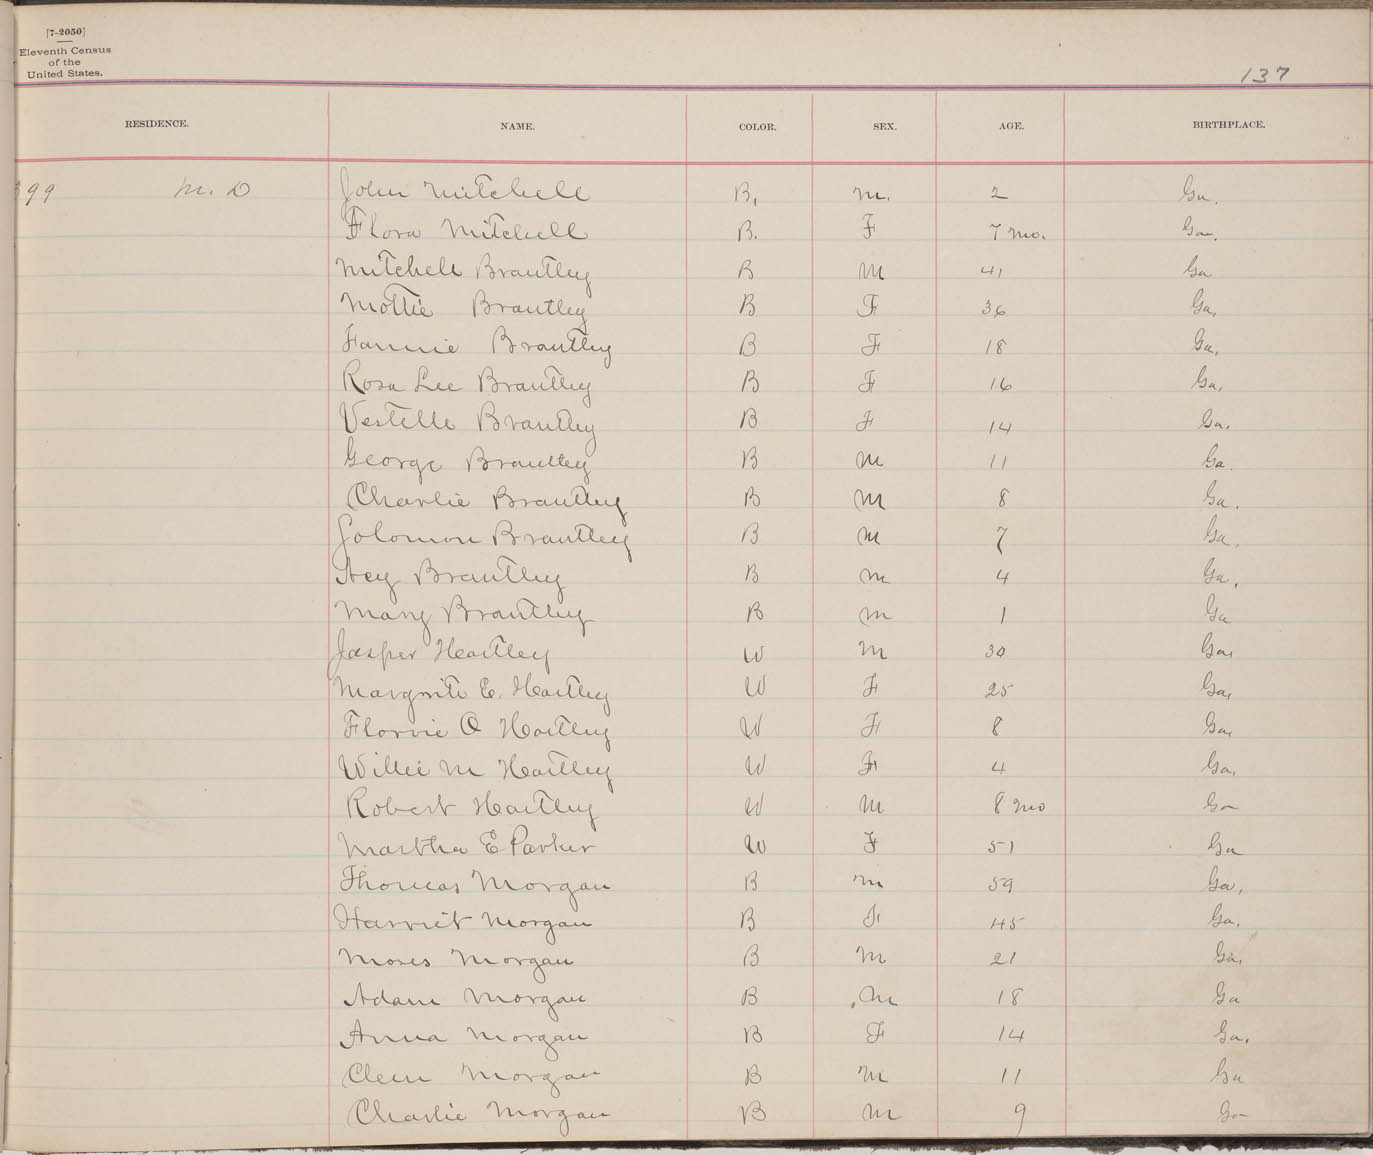 [7-2050]
Eleventh Census
of the
United States.
137
RESIDENCE. NAME. COLOR. SEX. AGE. BIRTHPLACE.
99 M. D John Mitchell B. M. 2 Ga.
Flora Mitchell B. F 7 mo. Ga.
Mitchell Brantley B M 41 Ga
Mottie Brantley B F 36 Ga.
Fannie Brantley B F 18 Ga.
Rosa Lee Brantley B F 16 Ga.
Vestelle Brantley B F 14 Ga.
George Brantley B M 11 Ga.
Charlie Brantley B M 8 Ga.
Solomon Brantley B M 7 Ga.
Acy Brantley B M 4 Ga.
Mary Brantley B M 1 Ga
Jasper Hartley W M 30 Ga.
Margrite E. Hartley W F 25 Ga.
Florrie O Hartley W F 8 Ga.
Willie M Hartley W F 4 Ga.
Robert Hartley W M 8 mo Ga
Martha E Parker W F 51 Ga
Thomas Morgan B M 59 Ga.
Harriet Morgan B F 45 Ga.
Moses Morgan B M 21 Ga.
Adam Morgan B M 18 Ga
Anna Morgan B F 14 Ga.
Clem Morgan B M 11 Ga
Charlie Morgan B M 9 Ga